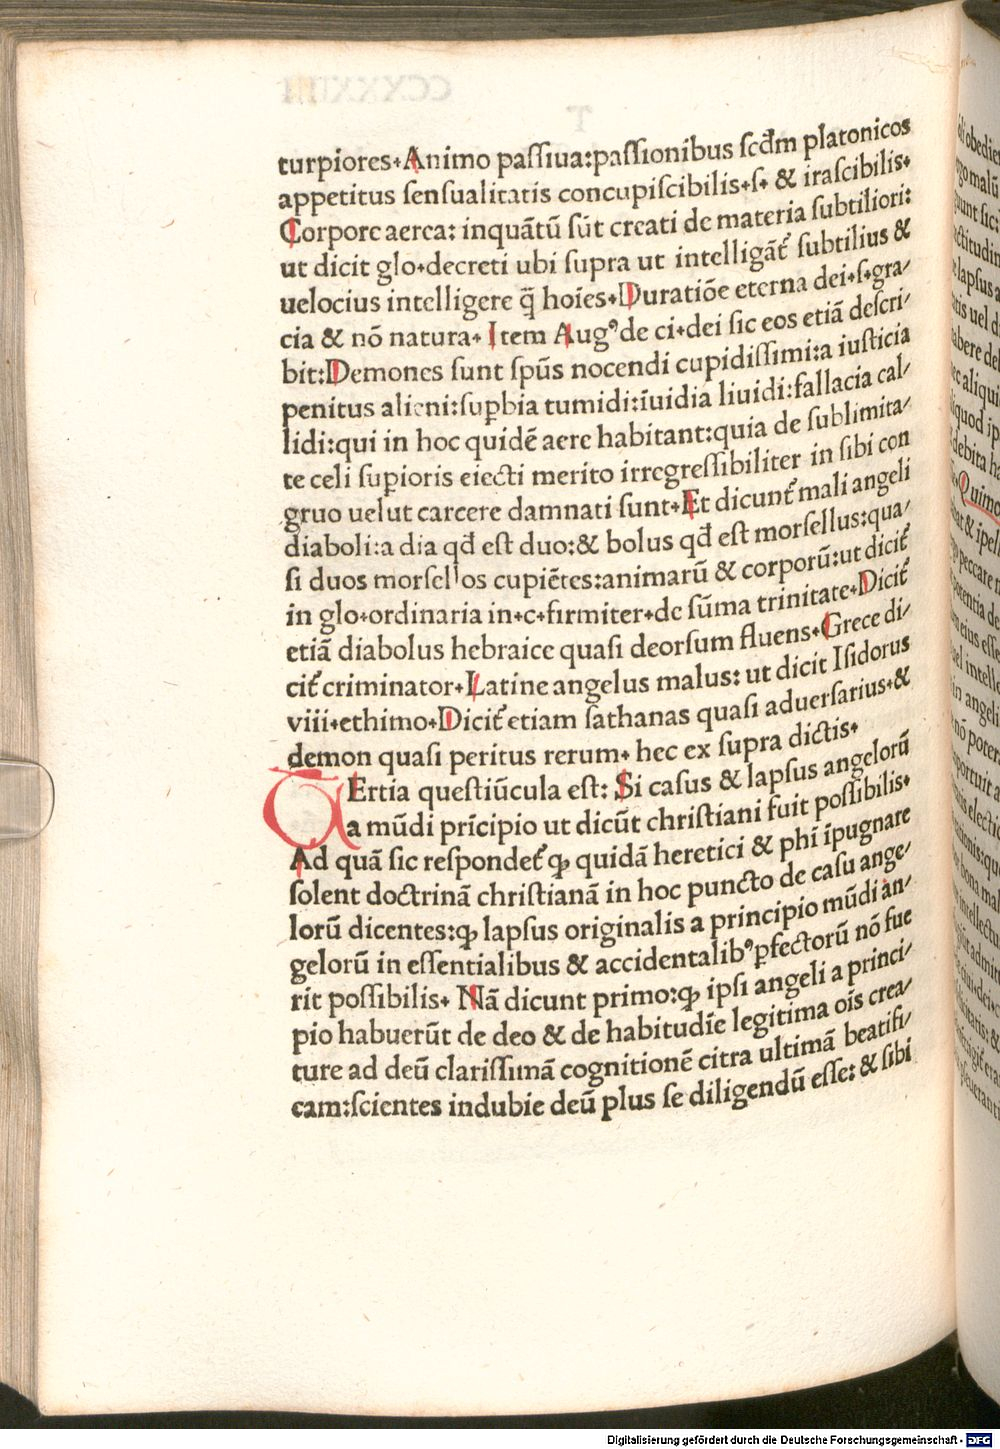 turpiores. Animo paſſiua:paſſionibus ſcd̄m platonicos
appetitus ſenſualitatis concupiſcibilis.ſ. & iraſcibilis.
Corpore aerea: inquātū ſūt creati de materia ſubtiliori:
ut dicit glo.decreti ubi ſupra ut intelligāt᷑ ſubtilius &
uelocius intelligere q̄ hoīes. Duratiōe eterna dei.ſ.gra/
cia & nō natura. Item Augꝰ de ci.dei ſic eos etiā deſcri/
bit:Demones ſunt ſpūs nocendi cupidiſſimi:a iuſticia
penitus alieni:ſuꝑbia tumidi:īuidia liuidi:fallacia cal/
lidi:qui in hoc quidē aere habitant:quia de ſublimita/
te celi ſuꝑioris eiecti merito irregreſſibiliter in ſibi con
gruo uelut carcere damnati ſunt. Et dicunt᷑ mali angeli
diaboli:a dia qd̄ eſt duo:& bolus qd̄ eſt morſellus:qua/
ſi duos morſellos cupiētes:animarū & corporū:ut dicit᷑
in glo.ordinaria in.c.firmiter.de ſūma trinitate. Dicit᷑
etiā diabolus hebraice quaſi deorſum fluens. Grece di/
cit᷑ criminator. Latine angelus malus: ut dicit Iſidorus
viii.ethimo. Dicit᷑ etiam ſathanas quaſi aduerſarius.&
demon quaſi peritus rerum. hec ex ſupra dictis.
TErtia queſtiūcula eſt: Si caſus & lapſus angelorū
a mūdi prīcipio ut dicūt chriſtiani fuit poſſibilis.
Ad quā ſic reſpondet᷑ ꝙ quidā heretici & phī īpugnare
ſolent doctrinā chriſtianā in hoc puncto de caſu ange/
lorū dicentes:ꝙ lapſus originalis a principio mūdi an/
gelorū in eſſentialibus & accidentalibꝰ ꝑfectorū nō fue
rit poſſibilis. Nā dicunt primo:ꝙ ipſi angeli a princi/
pio habuerūt de deo & de habitudīe legitima oīs crea/
ture ad deū clariſſimā cognitionē citra ultimā beatifi/
cam:ſcientes indubie deū plus ſe diligendū eſſe: & ſibi
Digitalisierung gefördert durch die Deutsche Forschungsgemeinschaft - DFG